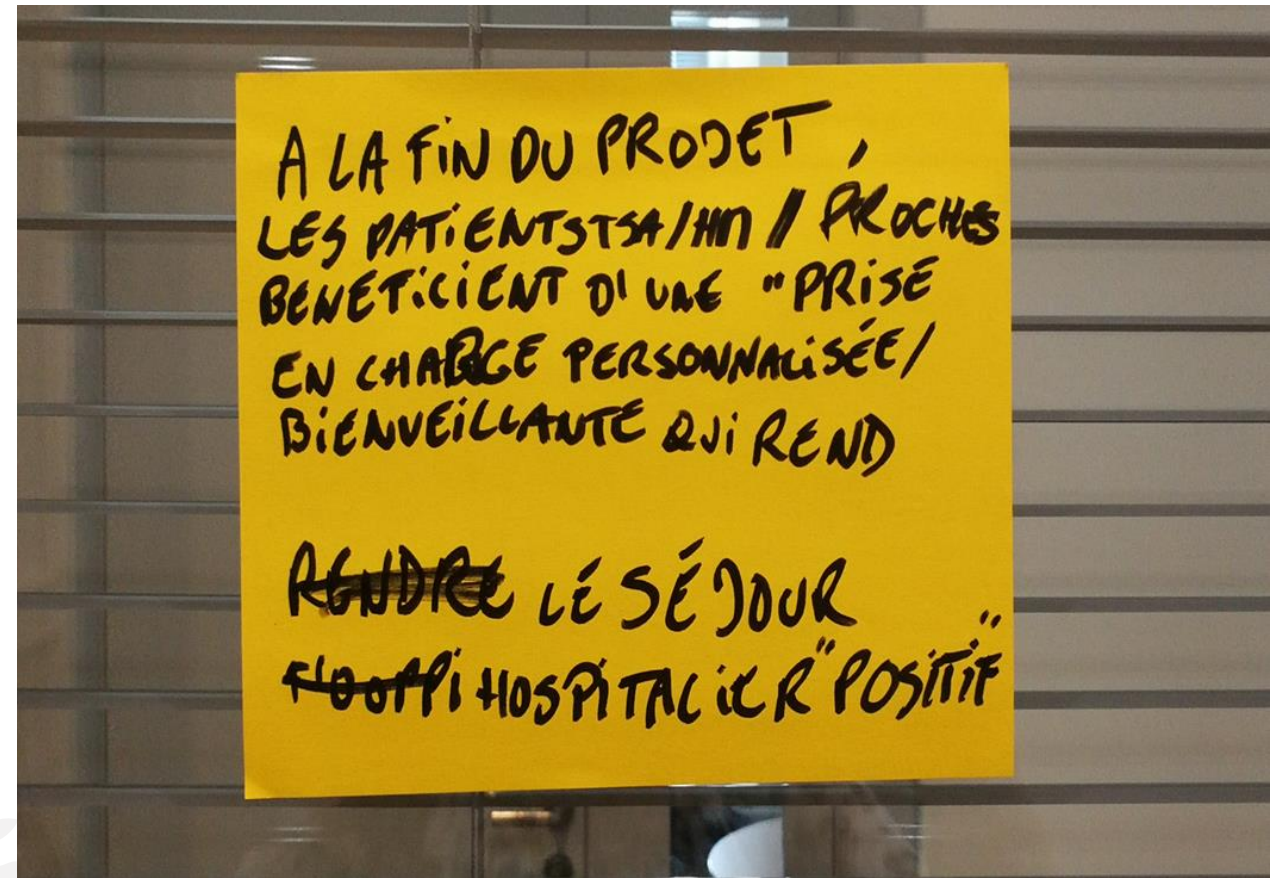 A LA FIN DU PROJET,
LES PATIENTS TSA/HM // PROCHES
BENEFICIENT D'UNE "PRISE
EN CHARGE PERSONNALISÉE/
BIENVEILLANTE QUI REND
RENDRE LE SÉJOUR
HOSPITALIER "POSITIF"